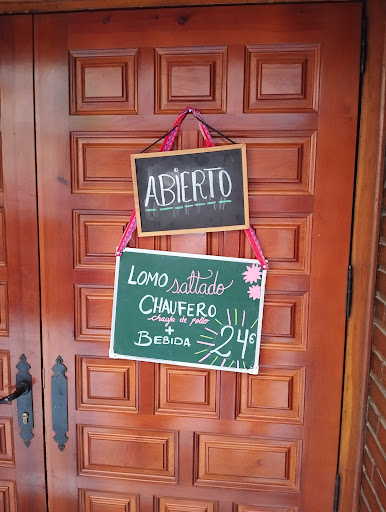 ABIERTO
LOMO saltado
CHAUFERO
chaufa de pollo
+
BEBIDA
24€